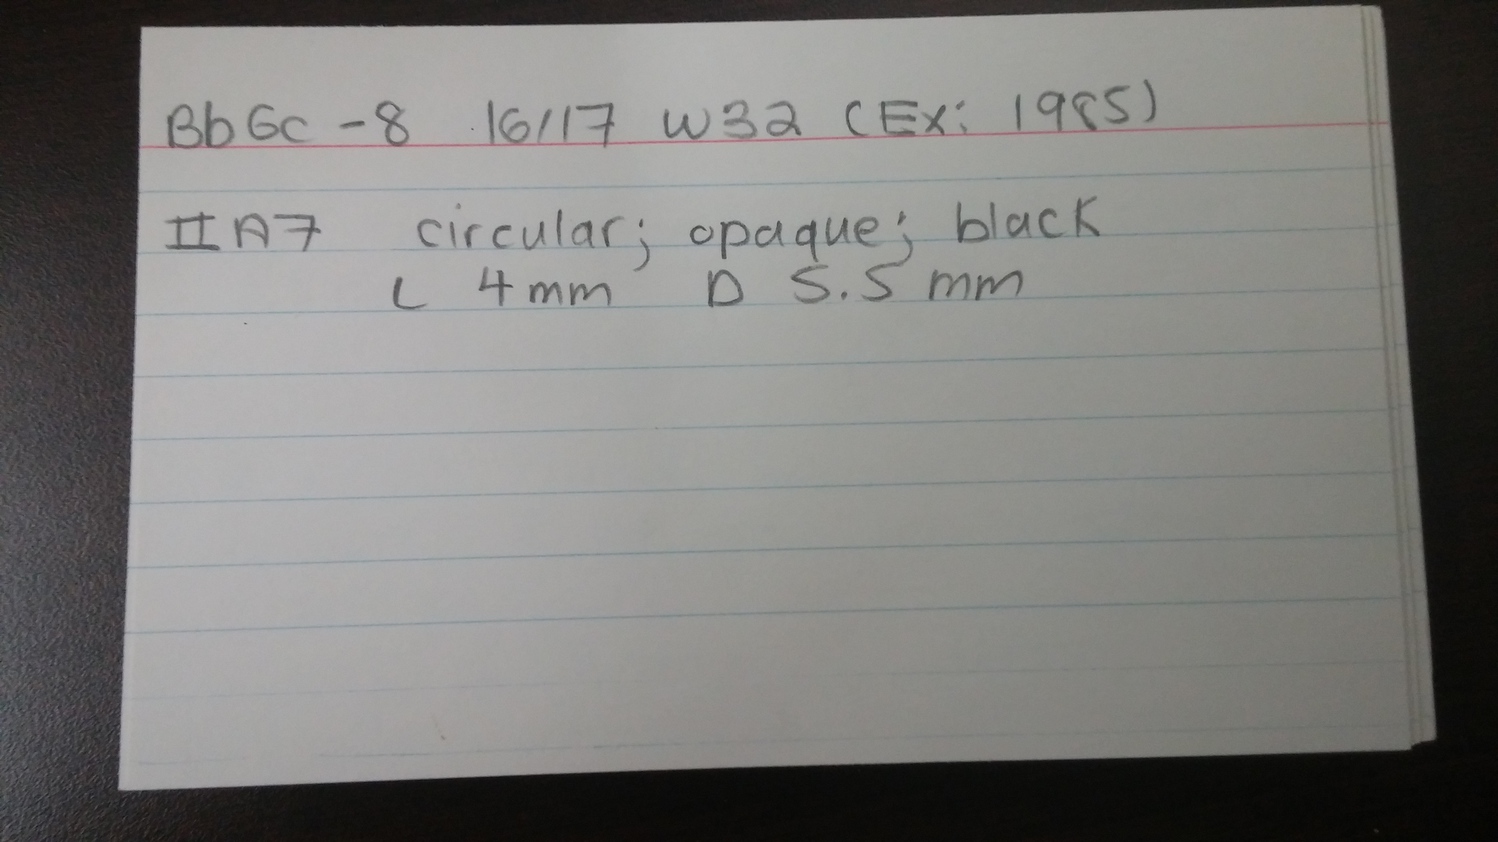 BbGc-8 16/17 W32 (Ex: 1985)
IIA7 circular; opaque; black
L 4mm D 5.5mm